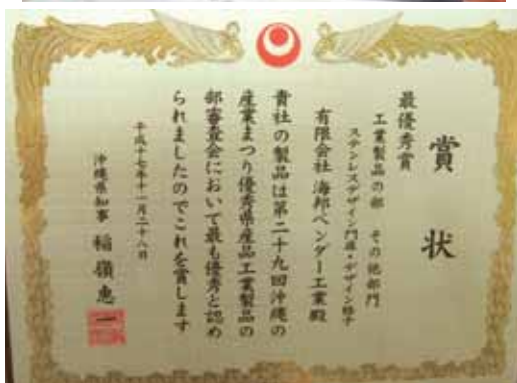 賞状
最優秀賞
工業製品の部 その他部門
ステンレスデザイン門扉・デザイン格子
有限会社 海邦ベンダー工業殿
貴社の製品は第二十九回沖縄の
産業まつり優秀県産品工業製品の
部審査会において最も優秀と認め
られましたのでこれを賞します
平成十七年十一月二十八日
沖縄県知事 稲嶺惠一